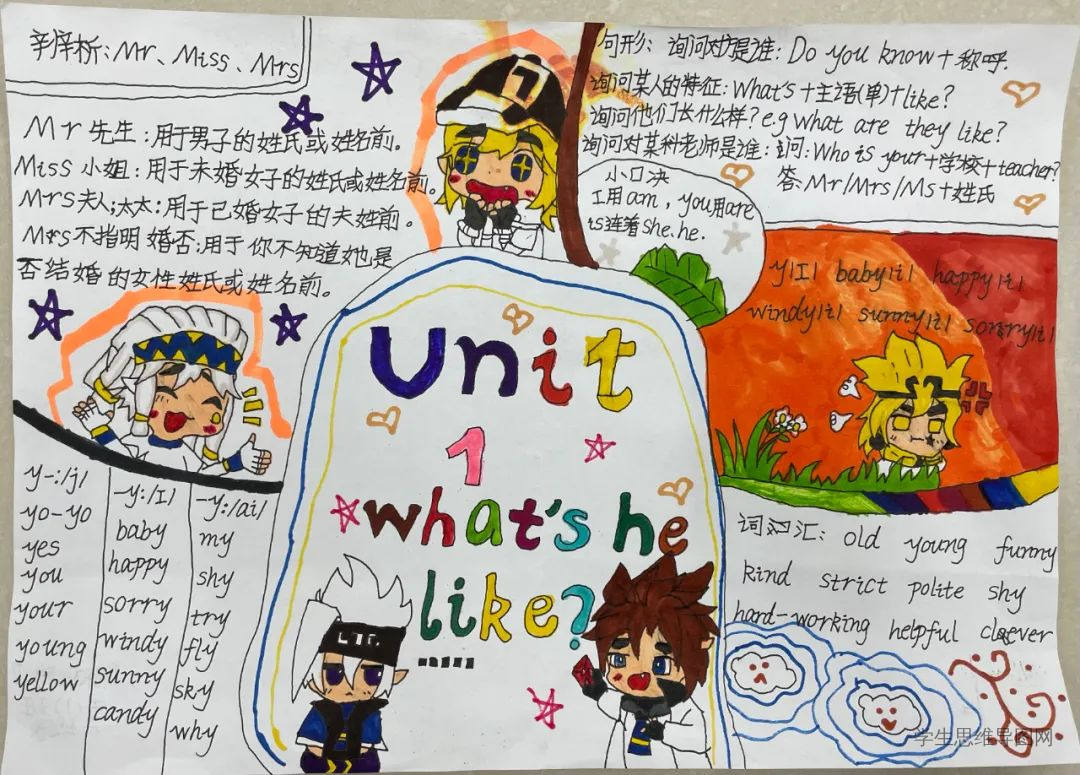 辛辛析：Mr、Miss、Mrs
Mr 先生：用于男子的姓氏或姓名前。
Miss 小姐：用于未婚女子的姓氏或姓名前。
Mrs夫人;太太：用于已婚女子的夫姓前。
Ms不指明婚否;用于你不知道她是
否结婚的女性姓氏或姓名前。
句形：询问对方是谁：Do you know+称呼.
询问某人的特征：What's+主语(单)+like?
询问他们长什么样? e.g What are they like?
询问对某科老师是谁：问：Who is your+学校+teacher?
答：Mr/Mrs/Ms+姓氏
小口决
I用am，you用are
is连着she.he.
y|I| baby|i| happy|i|
windy|i| sunny|i| sorry|i|
Unit
1
what's he
like?
L.T.C.
y-:/j/
yo-yo
yes
you
your
young
yellow
-y:/I/
baby
happy
sorry
windy
sunny
candy
-y:/ai/
my
shy
try
fly
sky
why
词汇：old young funny
kind strict polite shy
hard-working helpful clever
学生思维导图网